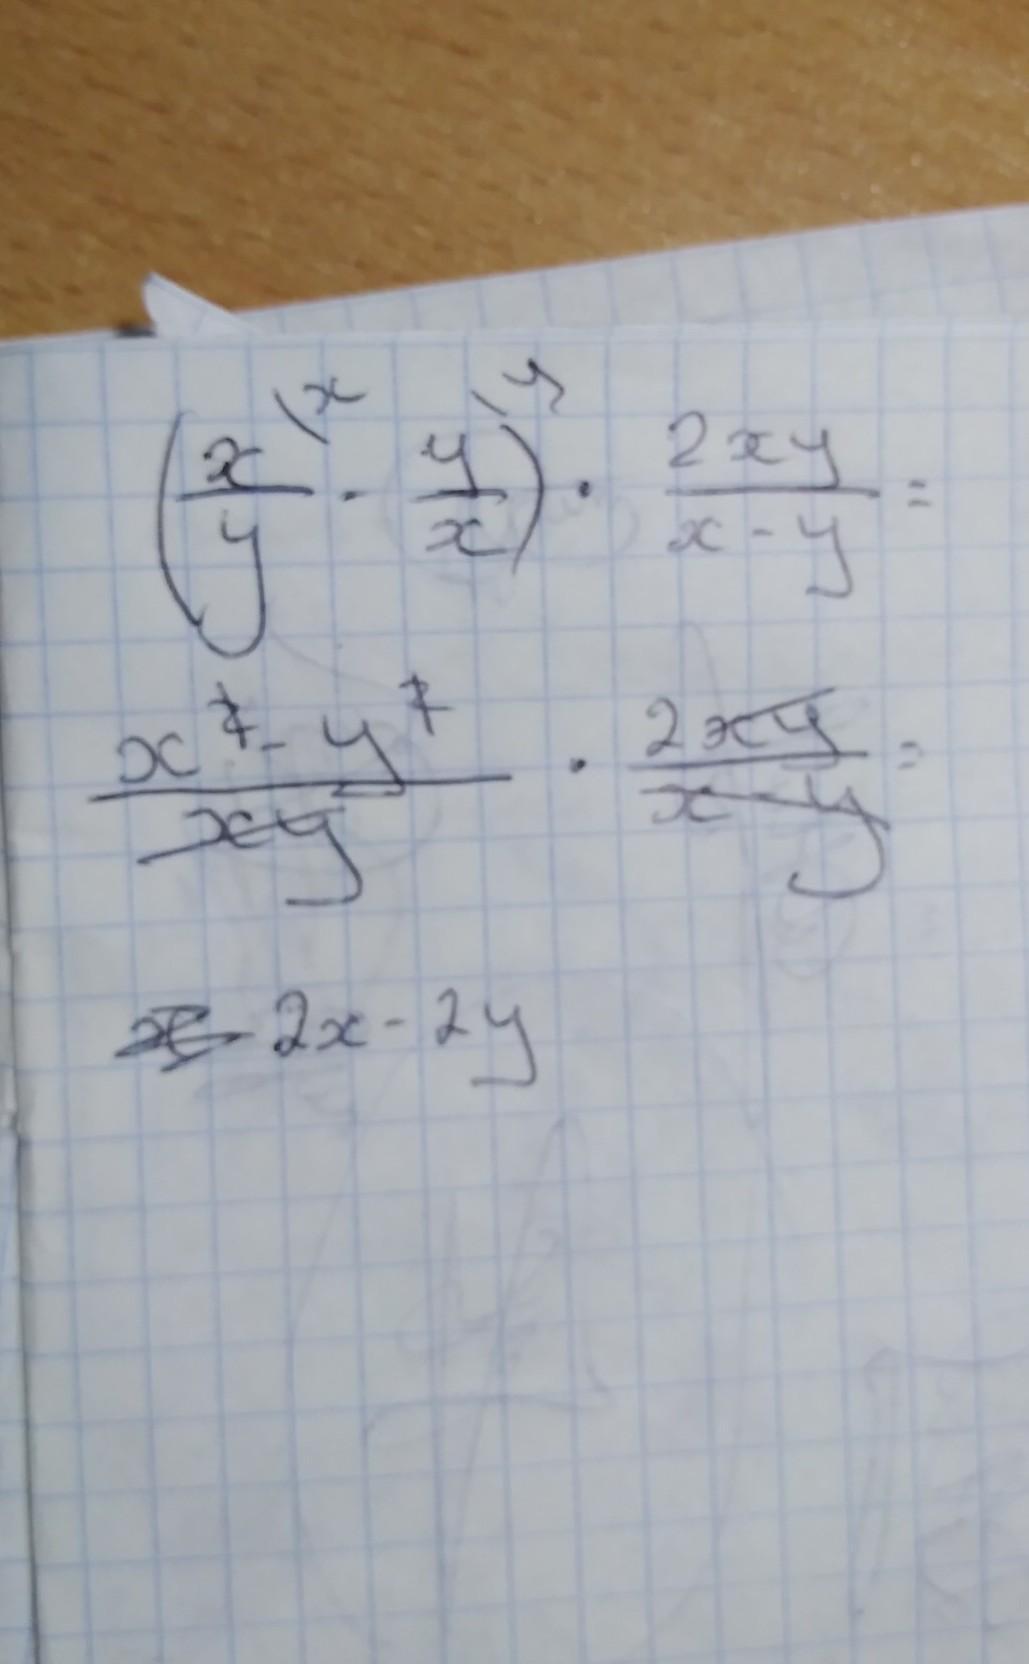 (x/y \x - y/x \y) · 2xy/(x - y) =
(x² - y²)/(xy) · 2xy/(x - y) =
2x - 2y